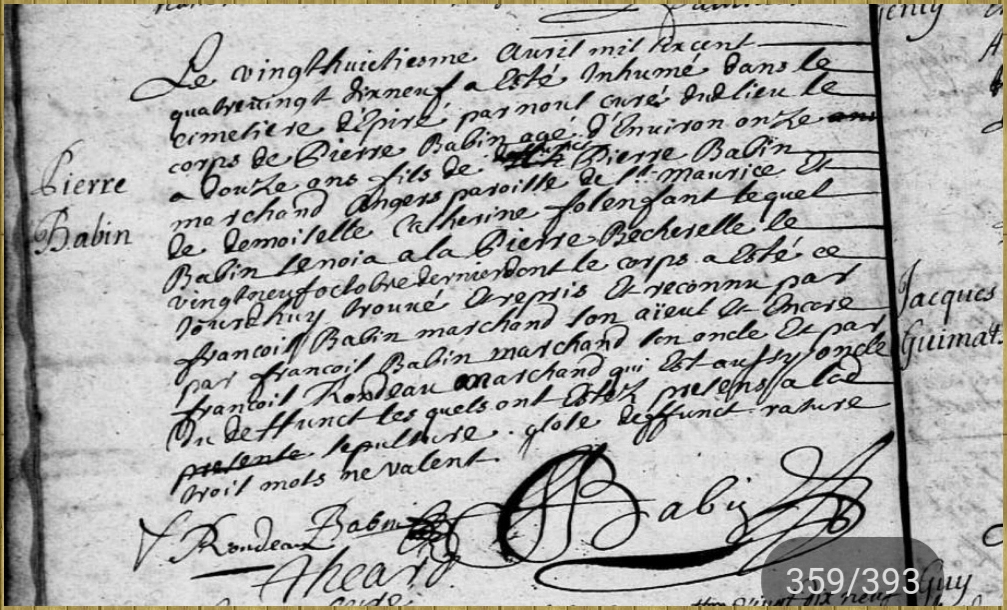 Le vingthuictiesme Avril mil sixcent
quatrevingt dixneuf a Esté Inhumé dans le
cimetiere d'Epiré par nous curé dud. lieu le
corps de Pierre Babin agé d'Environ onze ans
a douze ans fils de deffunct Pierre Babin
marchand Angers paroisse de St. Maurice Et
de demoiselle Catherine folenfant lequel
Babin se noia a la Pierre Becherelle le
vingtneuf octobre dernier dont le corps a Esté ce
Jourdhuy trouvé Et repris Et reconnu par
francois Babin marchand son aïeul Et Encore
par francois Babin marchand son oncle Et par
francois Rondeau marchand qui Est aussy oncle
Du deffunct les quels ont Estez presens a lad
presente sepulture . glose deffunct rature
trois mots ne valent
Pierre
Babin
Rondeau
Babin
Babin
Jacques
Guy
359/393